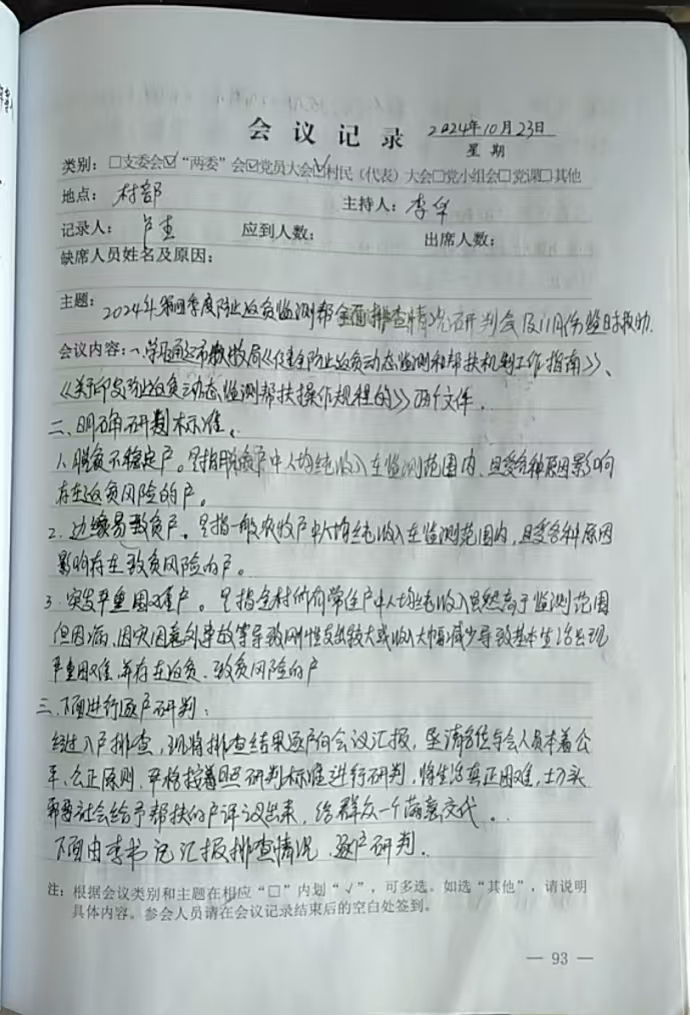 会议记录 2024年10月23日
星期
类别：□支委会☑“两委”会☑党员大会☑村民（代表）大会□党小组会□党课□其他
地点：村部 主持人：李华
记录人：卢 应到人数： 出席人数：
缺席人员姓名及原因：
主题：2024年第四季度防止返贫监测帮全面排查情况研判会及11月份临时救助.
会议内容：一、学习通辽市 局《健全防止返贫动态监测和帮扶机制工作指南》、
《关于印发防止返贫动态监测帮扶操作规程的》两个文件.
二、明确研判标准.
1.脱贫不稳定户。是指脱贫户中人均纯收入在监测范围内、且受各种原因影响
存在返贫风险的户。
2.边缘易致贫户。是指一般农牧户中人均纯收入在监测范围内，且受各种原因
影响存在致贫风险的户。
3.突发严重困难户。是指全村所有常住户中人均纯收入虽然高于监测范围
但因病、因灾因意外事故等导致刚性支出较大或收入大幅减少导致基本生活出现
严重困难，并存在返贫、致贫风险的户
三、下面进行逐户研判：
经过入户排查，现将排查结果逐户向会议汇报，坚请各位与会人员本着公
平、公正原则，严格按着照研判标准进行研判，将生活真正困难，切实
需要社会给予帮扶的户评议出来，给群众一个满意交代。
下面由李书记汇报排查情况、逐户研判.
注：根据会议类别和主题在相应“□”内划“√”，可多选。如选“其他”，请说明
具体内容。参会人员请在会议记录结束后的空白处签到。
— 93 —